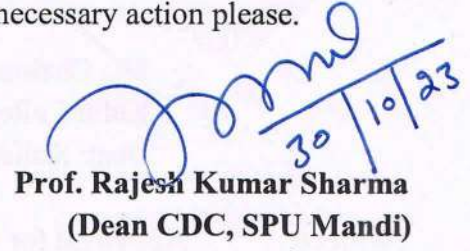 necessary action please.
30/10/23
Prof. Rajesh Kumar Sharma
(Dean CDC, SPU Mandi)